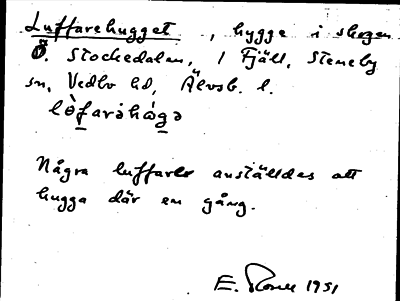 Luffarehugget, hygge i skogen
Ö. Stockedalen, 1 Fjäll, Steneby
sn, Vedbo hd, Älvsb. l.
lò̀farəhǿgə
Några luffare anställdes att
hugga där en gång.
E. 1951